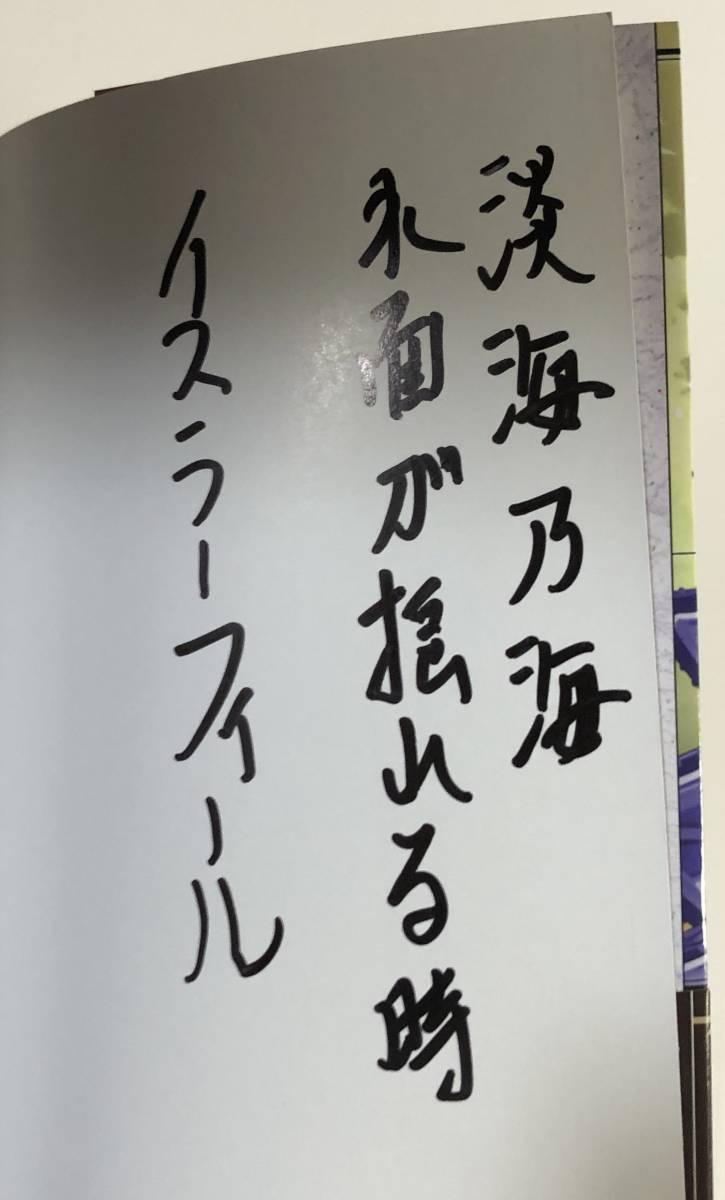 淡海乃海
水面が揺れる時
イスラーフィール